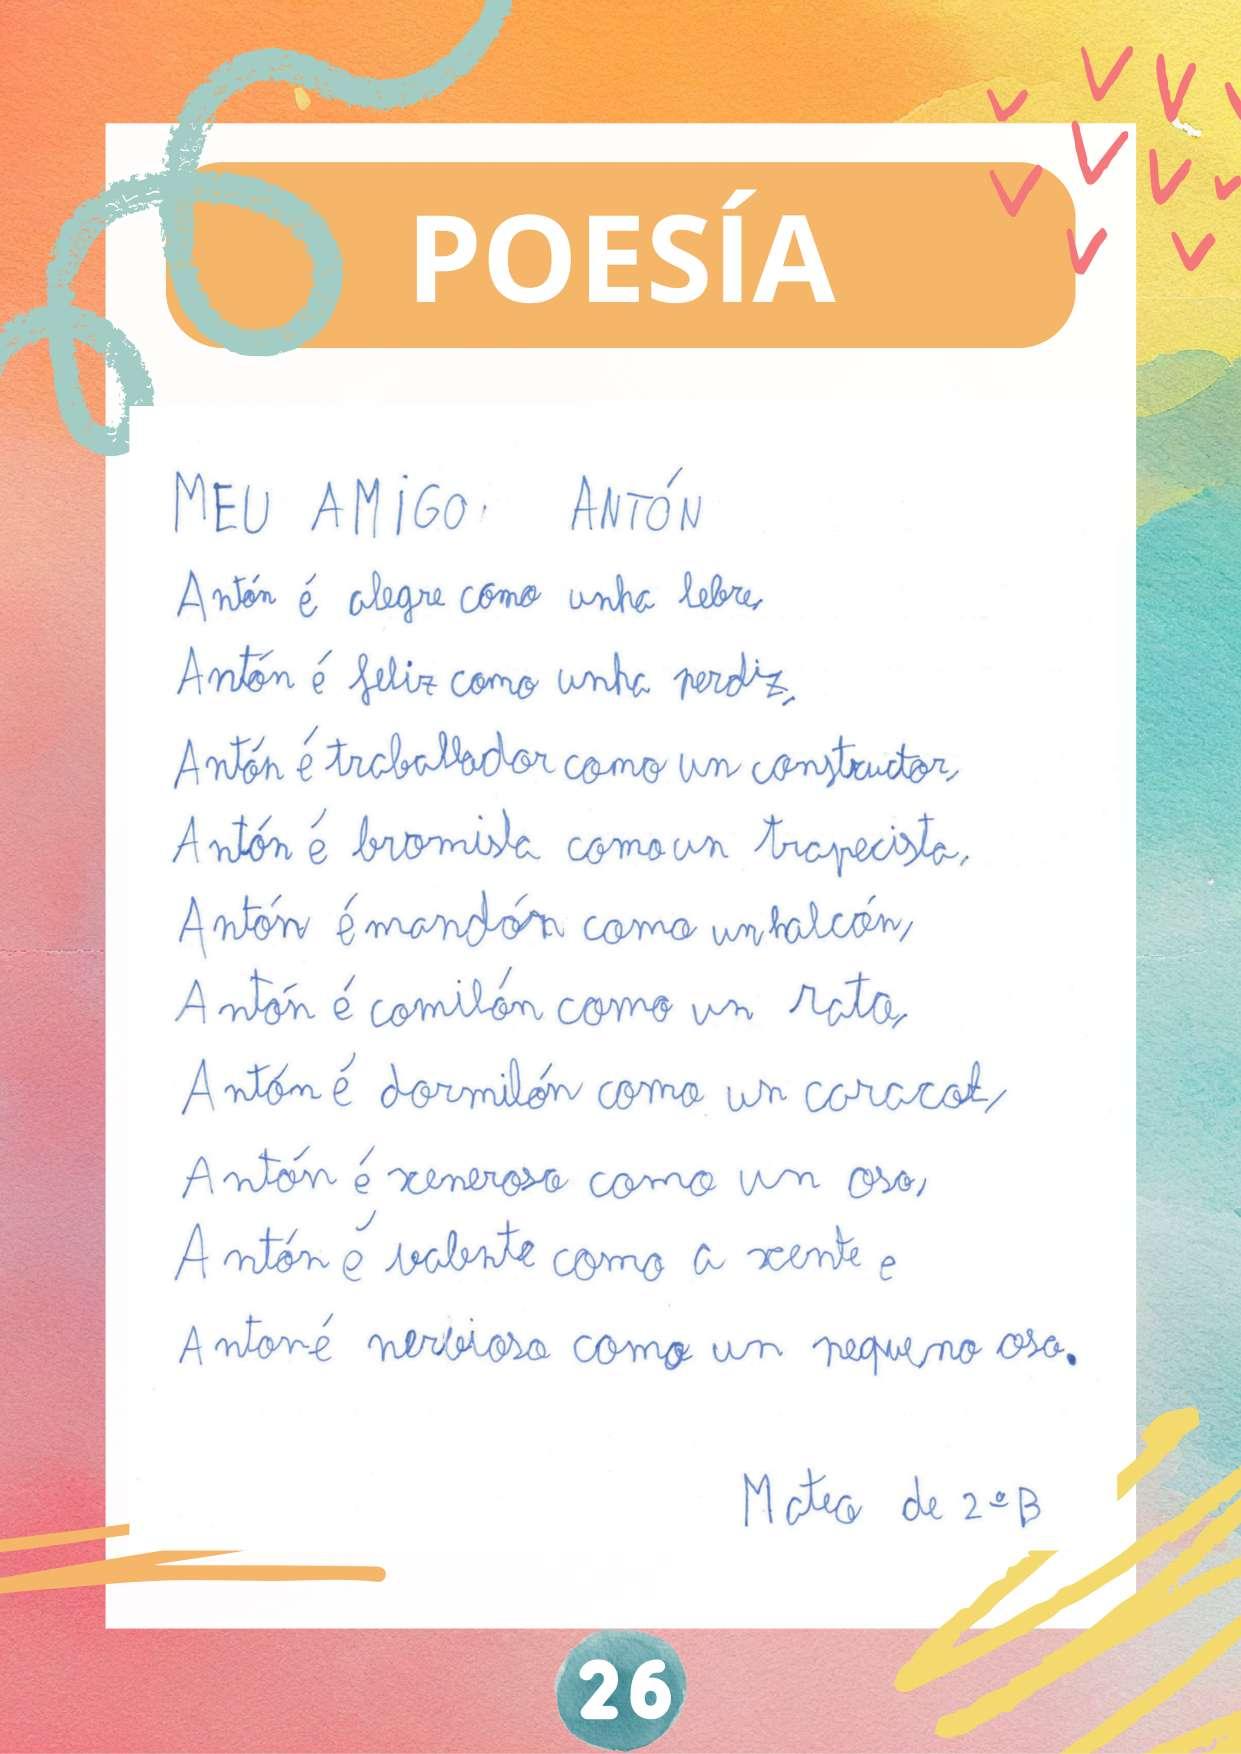 POESÍA
MEU AMIGO: ANTÓN
Antón é alegre como unha lebre,
Antón é feliz como unha perdiz,
Antón é traballador como un constructor,
Antón é bromista como un trapecista,
Antón é mandón como un halcón,
Antón é comilón como un rato,
Antón é dormilón como un caracol,
Antón é xeneroso como un oso,
Antón é valente como a xente e
Anton é nervioso como un pequeno oso.
Mateo de 2º B
26